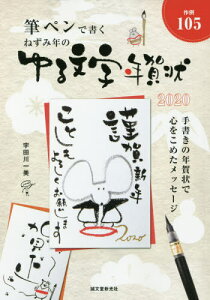 作例
105
筆ペンで書く
ねずみ年の
ゆる文字年賀状
2020
手書きの年賀状で
心をこめたメッセージ
宇田川一美
謹賀新年
ことしも
よろしくお願いします
2020
誠文堂新光社